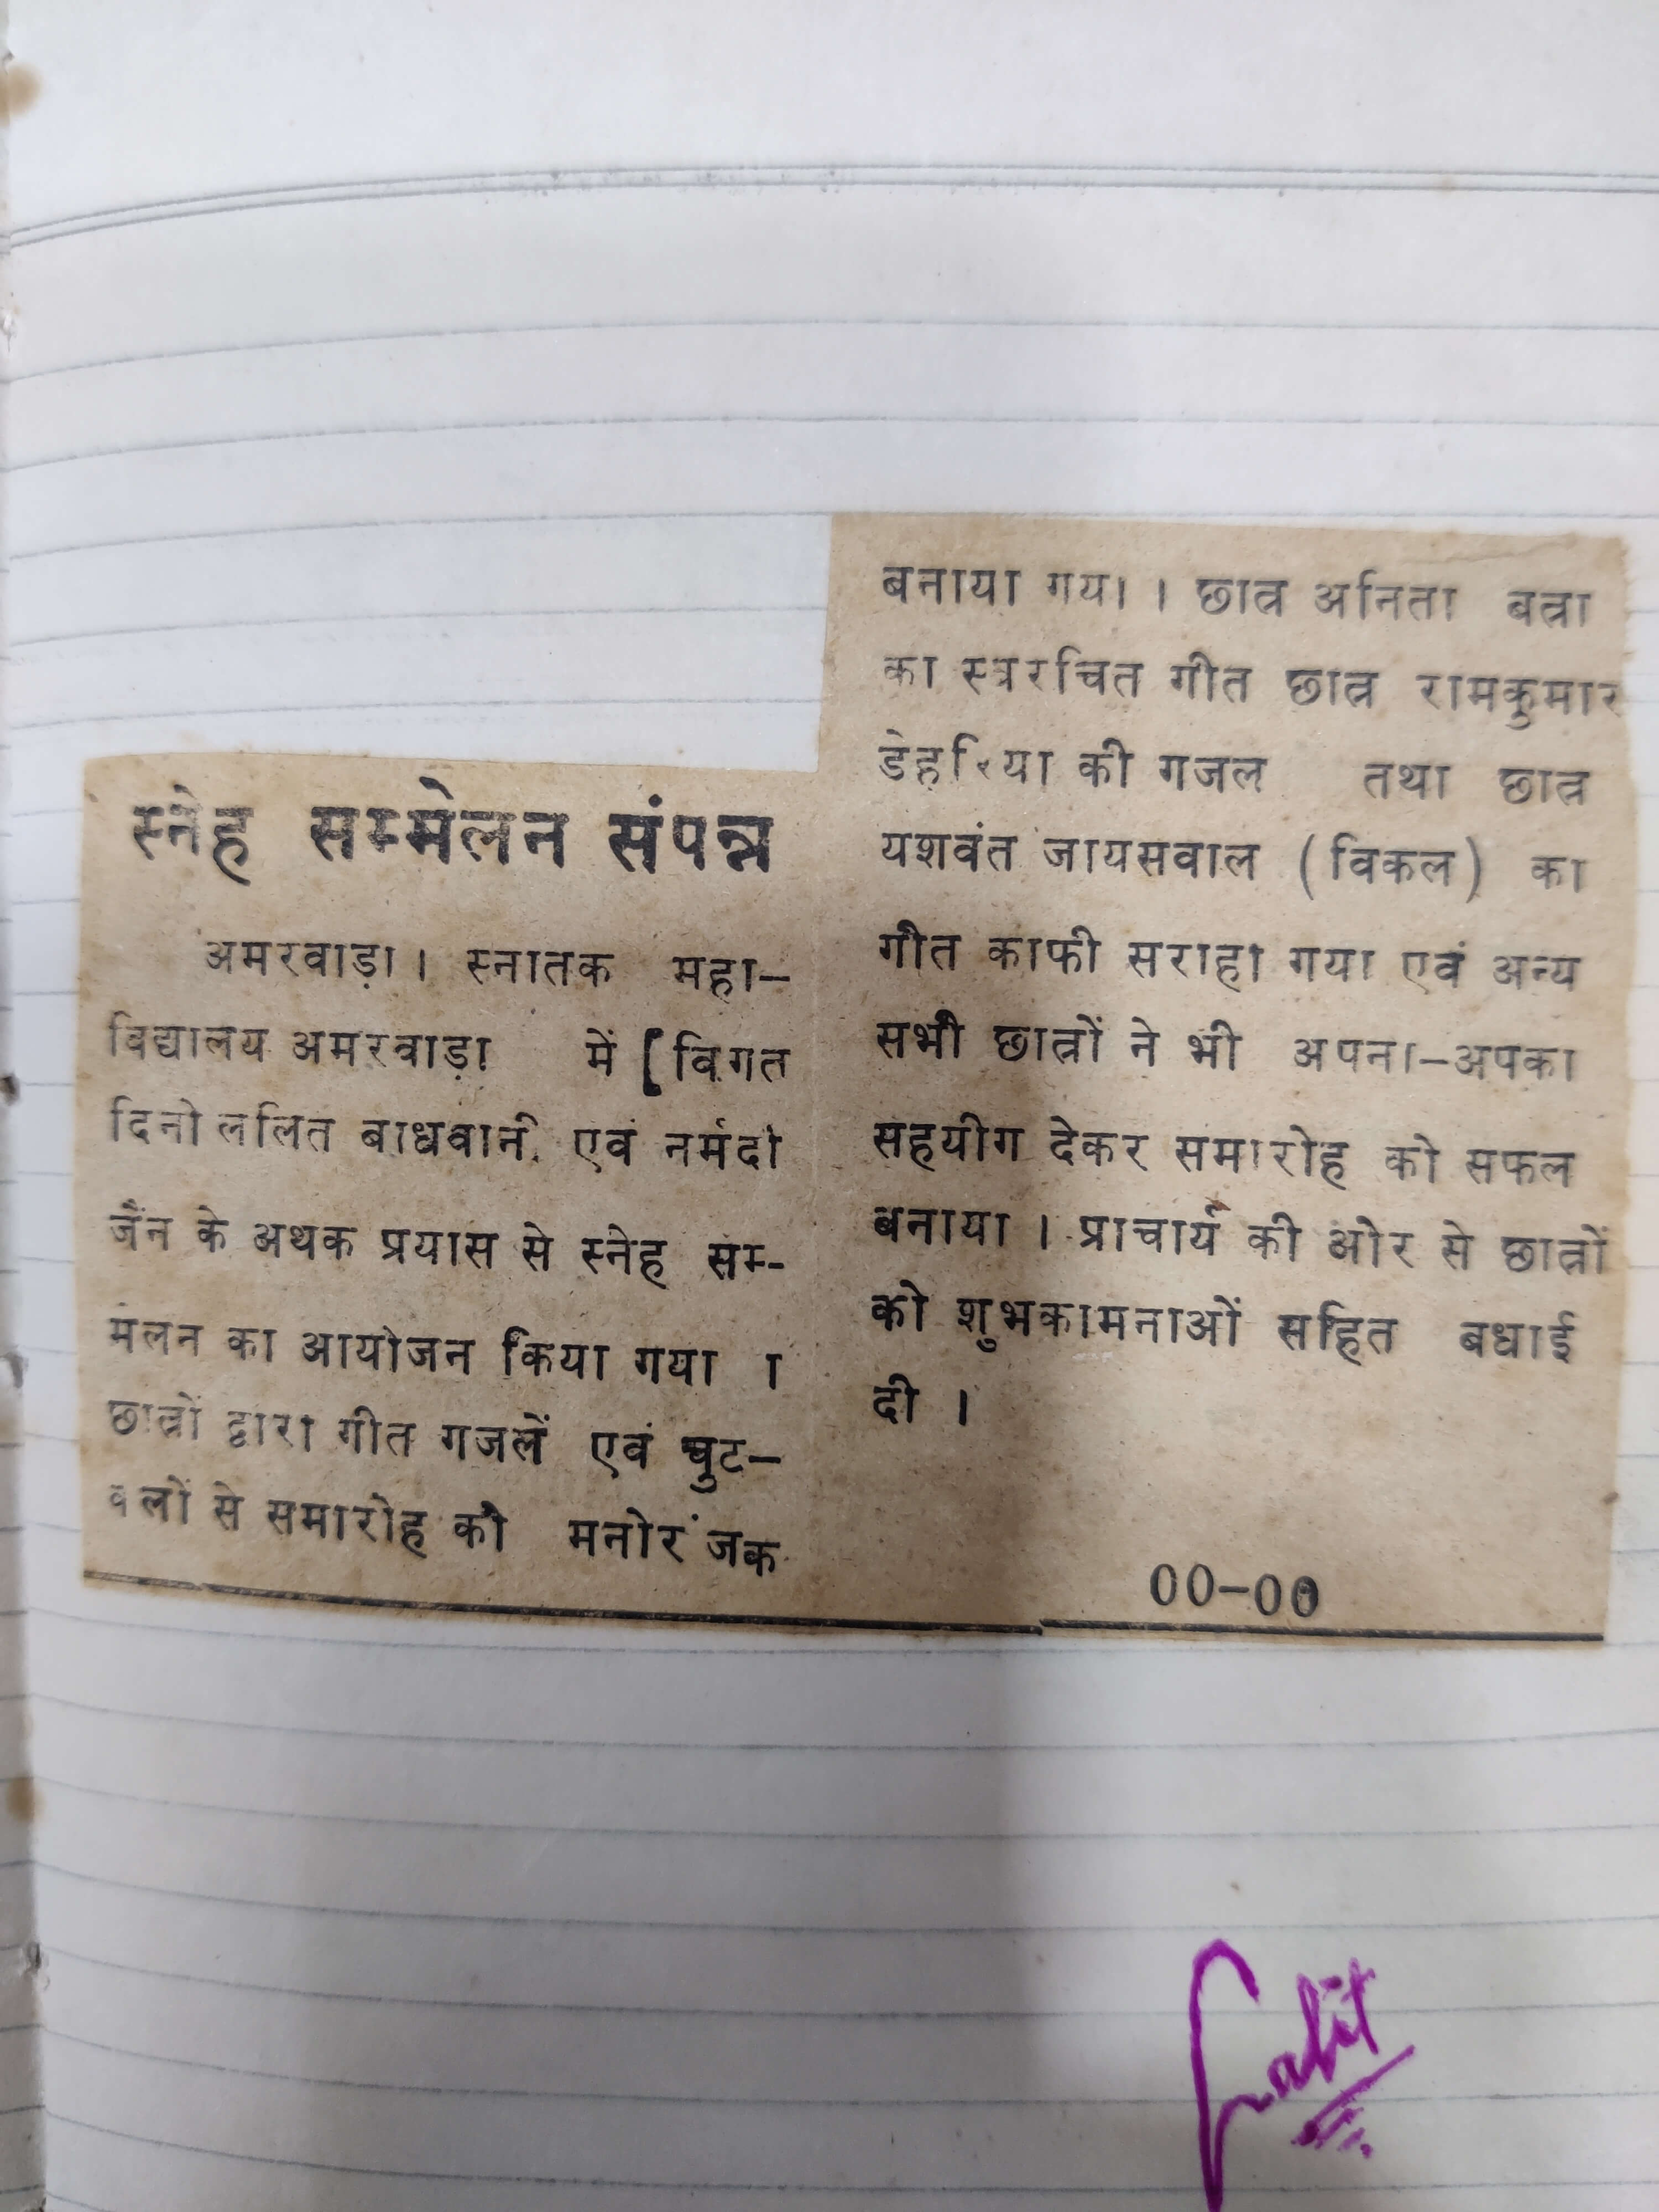 स्नेह सम्मेलन संपन्न
अमरवाड़ा । स्नातक महा-
विद्यालय अमरवाड़ा में [ विगत
दिनो ललित बाधवानी एवं नर्मदा
जैन के अथक प्रयास से स्नेह सम्-
मलन का आयोजन किया गया ।
छात्रों द्वारा गीत गजलें एवं चुट-
कलों से समारोह को मनोरंजक
बनाया गया । छात्र अनिता बत्रा
का स्वरचित गीत छात्र रामकुमार
डेहरिया की गजल तथा छात्र
यशवंत जायसवाल (विकल) का
गीत काफी सराहा गया एवं अन्य
सभी छात्रों ने भी अपना-अपका
सहयोग देकर समारोह को सफल
बनाया । प्राचार्य की ओर से छात्रों
को शुभकामनाओं सहित बधाई
दी ।
00-00